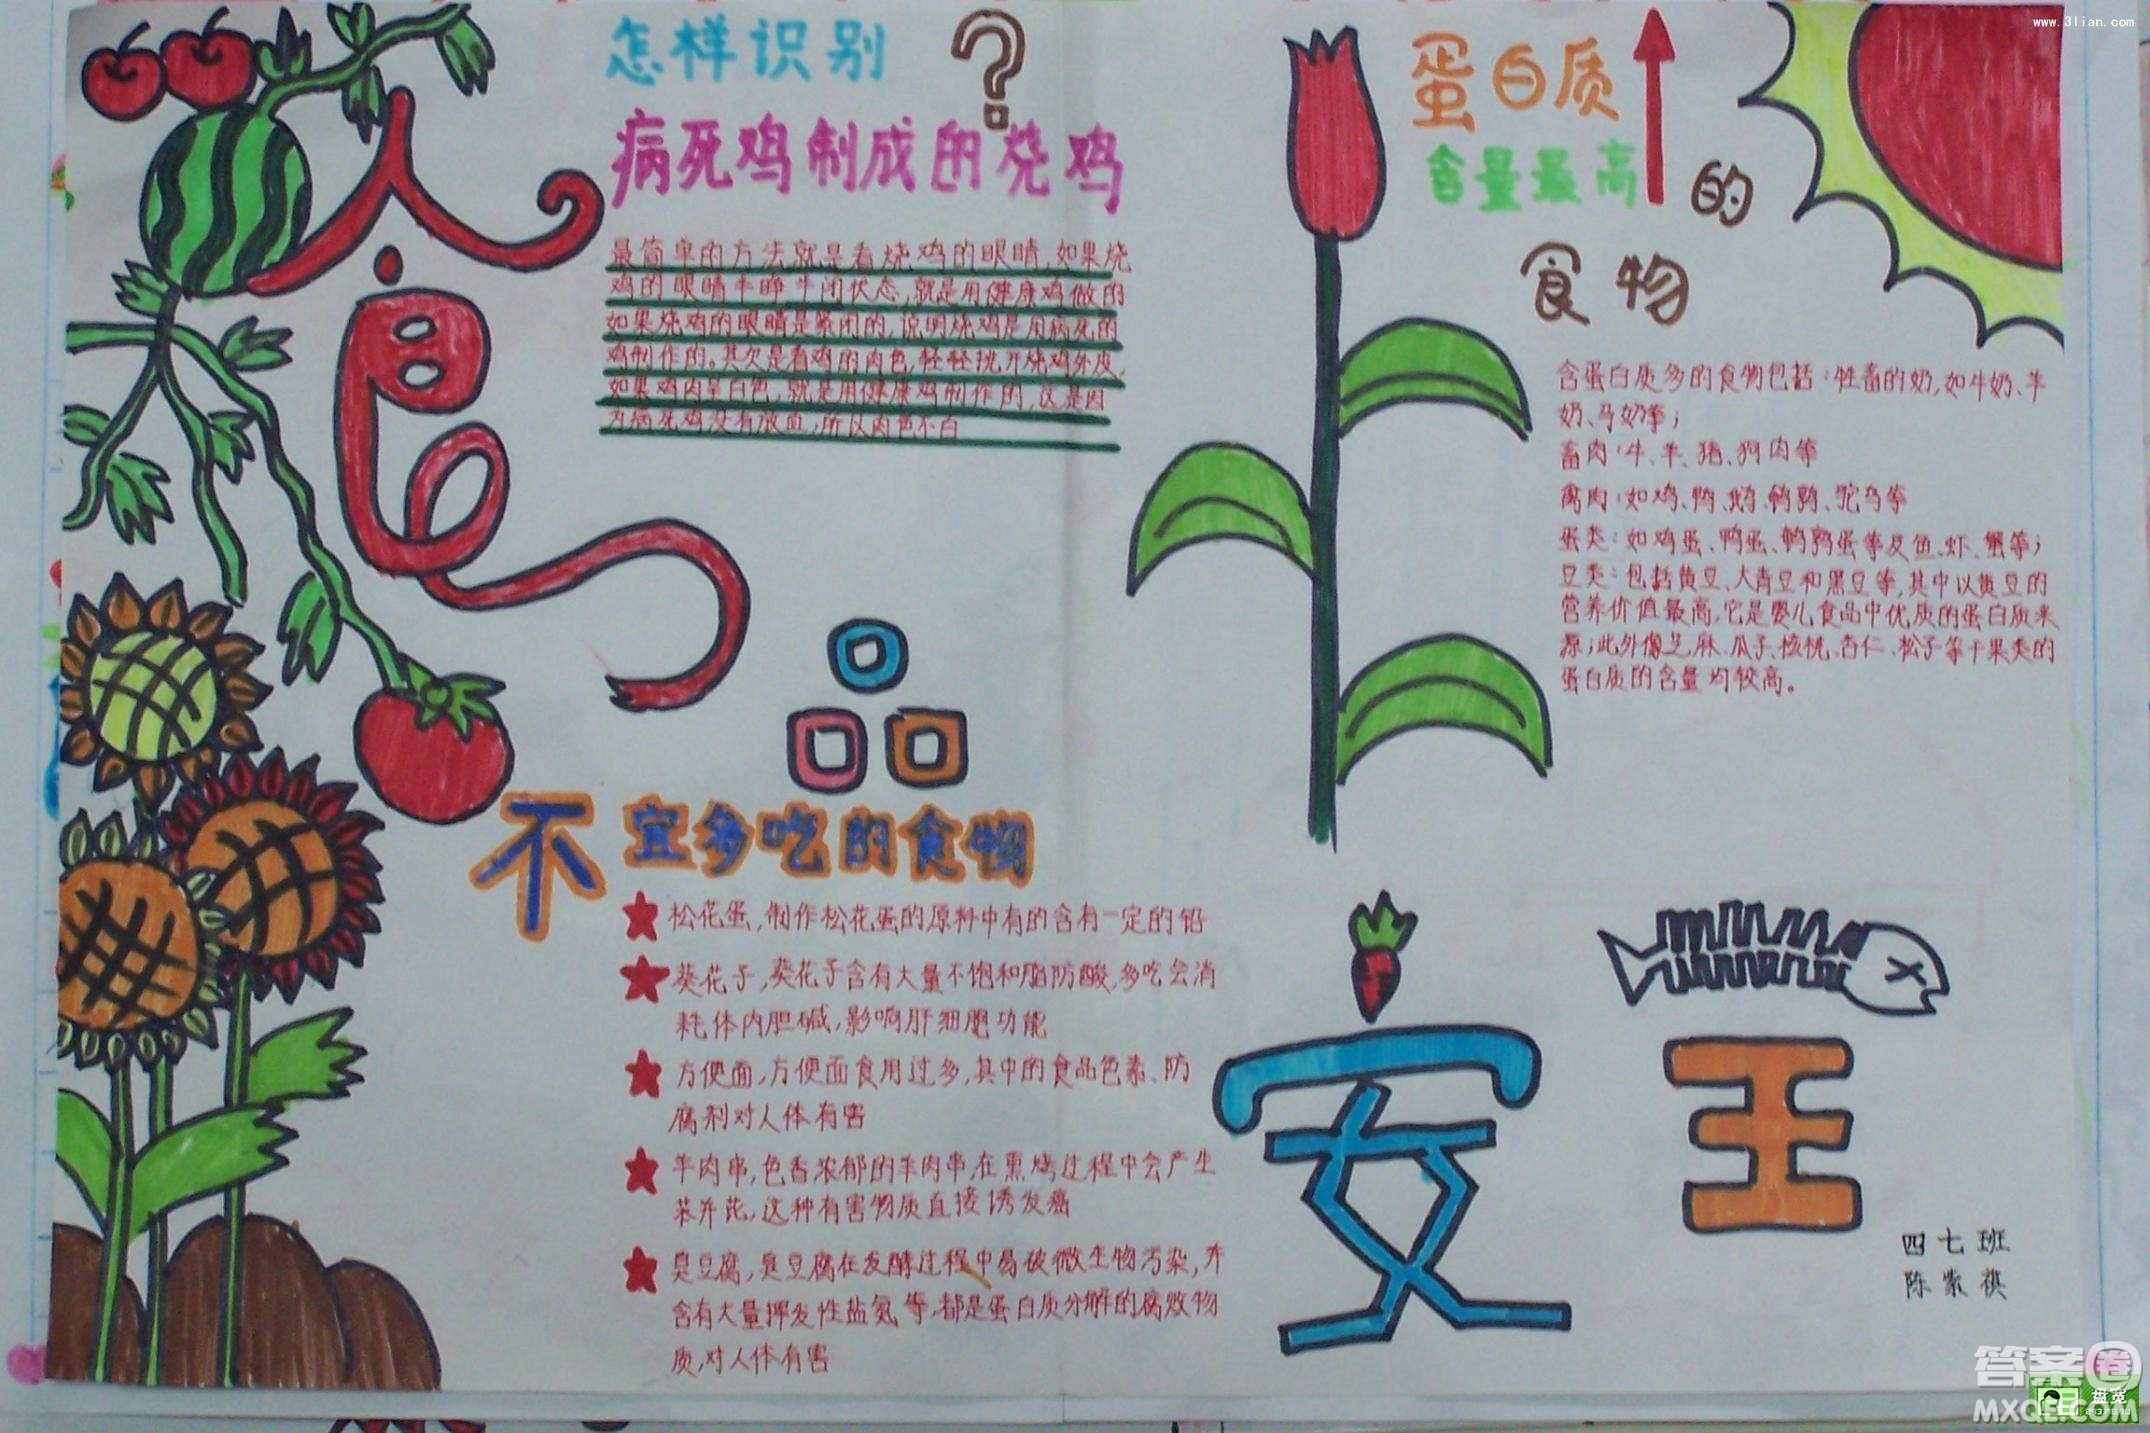 www.3lian.com
食品安全
怎样识别?
病死鸡制成的烧鸡
最简单的方法就是看烧鸡的眼睛,如果烧
鸡的眼睛半睁半闭状态,就是用健康鸡做的
如果烧鸡的眼睛是紧闭的,说明烧鸡是用病死的
鸡制作的。其次是看鸡的肉色,轻轻挑开烧鸡外皮,
如果鸡肉呈白色,就是用健康鸡制作的,这是因
为病死鸡没有放血,所以肉色不白
不宜多吃的食物
松花蛋,制作松花蛋的原料中有的含有一定的铅
葵花子,葵花子含有大量不饱和脂防酸,多吃会消
耗体内胆碱,影响肝细胞功能
方便面,方便面食用过多,其中的食品色素、防
腐剂对人体有害
羊肉串,色香浓郁的羊肉串,在熏烤过程中会产生
苯并芘,这种有害物质直接诱发癌
臭豆腐,臭豆腐在发酵过程中易被微生物污染,并
含有大量挥发性盐氮等,都是蛋白质分解的腐败物
质,对人体有害
蛋白质
含量最高的
食物
含蛋白质多的食物包括:牲畜的奶,如牛奶、羊
奶、马奶等;
畜肉:牛、羊、猪、狗肉等
禽肉:如鸡、鸭、鹅、鹌鹑、驼鸟等
蛋类:如鸡蛋、鸭蛋、鹌鹑蛋等及鱼、虾、蟹等;
豆类:包括黄豆、大青豆和黑豆等,其中以黄豆的
营养价值最高,它是婴儿食品中优质的蛋白质来
源;此外像芝麻、瓜子、核桃、杏仁、松子等干果类的
蛋白质的含量均较高。
四七班
陈紫祺
答案圈
MXQE.COM